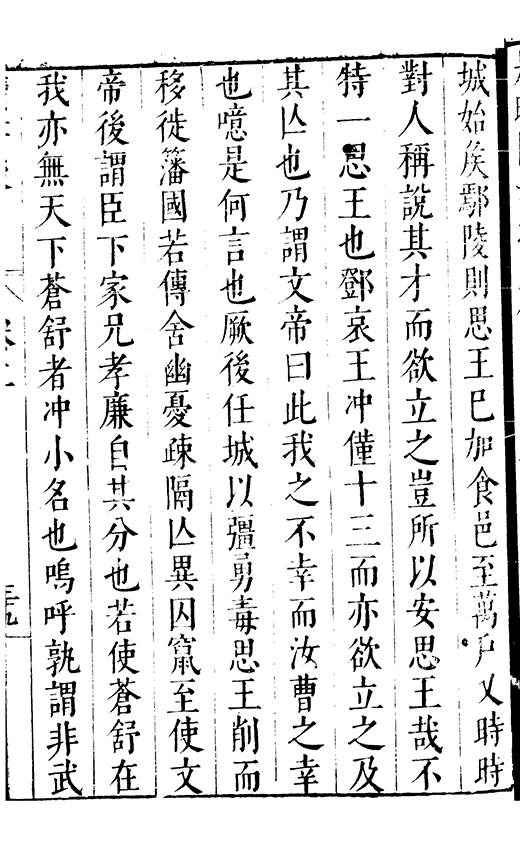 城始矦鄢陵則思王已加食邑至萬戶又時時
對人稱說其才而欲立之豈所以安思王哉不
特一思王也鄧哀王冲僅十三而亦欲立之及
其亾也乃謂文帝曰此我之不幸而汝曹之幸
也噫是何言也厥後任城以彊勇毒思王削而
移徙籓國若傳舍幽憂疎隔亾異囚竄至使文
帝後謂臣下家兄孝廉自其分也若使蒼舒在
我亦無天下蒼舒者冲小名也嗚呼孰謂非武